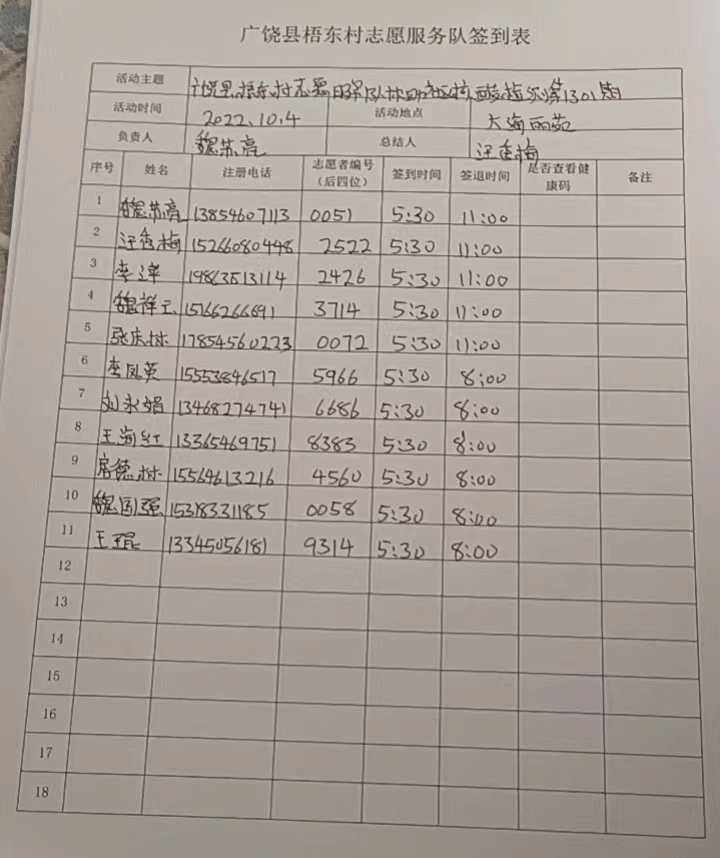 广饶县梧东村志愿服务队签到表
活动主题 广饶县梧东村志愿服务队协助社区核酸检测第1301期
活动时间 2022.10.4 活动地点 大海丽苑
负责人 魏苏亮 总结人 汪香梅
序号 姓名 注册电话 志愿者编号（后四位） 签到时间 签退时间 是否查看健康码 备注
1 魏苏亮 13854607113 0051 5:30 11:00
2 汪香梅 15266080498 2522 5:30 11:00
3 李 19863513114 2426 5:30 11:00
4 魏祥 15766266691 3714 5:30 11:00
5 张庆林 17854560223 0072 5:30 11:00
6 李凤英 15553846517 5966 5:30 8:00
7 刘永娟 13468274741 6686 5:30 8:00
8 王海红 13365469751 8383 5:30 8:00
9 常德林 15564613216 4560 5:30 8:00
10 魏国强 15318331185 0058 5:30 8:00
11 王琨 13345056181 9314 5:30 8:00
12
13
14
15
16
17
18